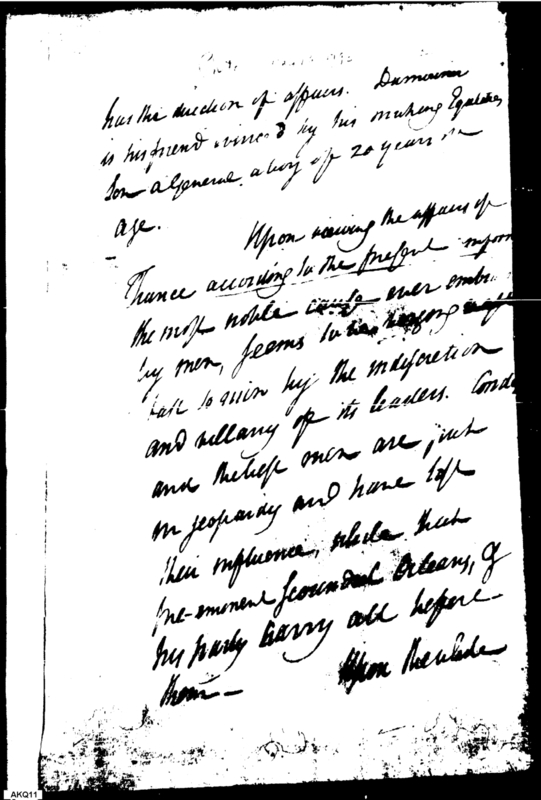 has the direction of affairs. Dumourier
is his friend evinced by his making Egalités
Son a General, a boy of 20 years on
age.
Upon viewing the affairs of
France according to the present inform
the most noble cause ever embra
by men, seems to be
fast to ruin by the indiscretion
and villany of its leaders. Cond
and the best men are put
in jeopardy and have lost
their influence, while that
pre-eminent scoundrel Orleans, &
his party carry all before
them—
Upon the whole
AKQ11